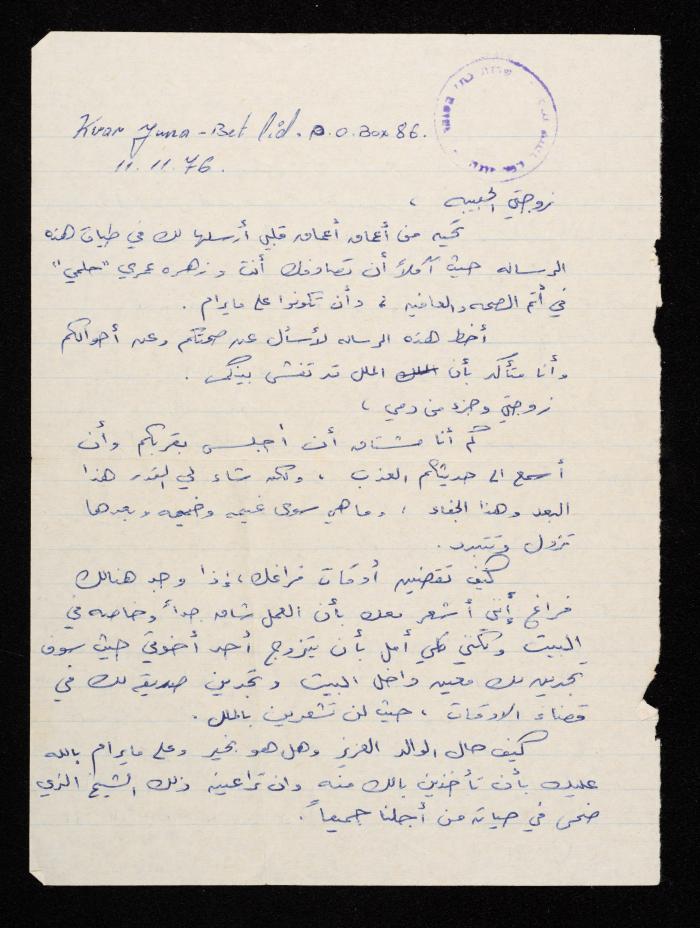 Kvar Yuna - Bet lid. P.O. Box 86.
11.11.76.
زوجتي الحبيبه ،
تحيه من أعماق أعماق قلبي أرسلها لك في طيات هذه
الرساله حيث آملاً أن تصادفك أنت و زهره عمري "حلمي"
في أتم الصحه والعافيه ، وأن تكونوا على مايرام .
أخط هذه الرساله لأسأل عن صحتكم وعن أحوالكم
وأنا متأكد بأن الملل قد تفشى بينكم .
زوجتي وجزء من دمي ،
كم أنا مشتاق أن أجلس بقربكم وأن
أسمع الى حديثكم العذب ، ولكن شاء لي القدر هذا
البعد وهذا الجفاء ، وما هي سوى غيمه وضيعه وبعدها
تزول وتتبدد .
كيف تقضين أوقات فراغك ، إذا وجد هنالك
فراغ إنني أشعر معك بأن العمل شاق جداً وخاصه في
البيت ولكنني كلي أمل بأن يتزوج أحد أخوتي حيث سوف
تجدين لك معين داخل البيت وتجدين صديقه لك في
قضاء الاوقات ، حيث لن تشعرين بالملل .
كيف حال الوالد العزيز وهل هو بخير وعلى مايرام بالله
عليك بأن تأخذين بالك منه وان تراعينه ذلك الشيخ الذي
ضحى في حياته من أجلنا جميعاً .